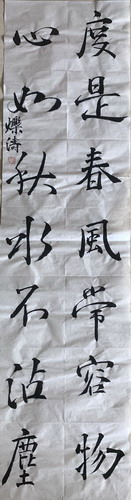 度是春風常容物
心如秋水不沾塵
燦濤